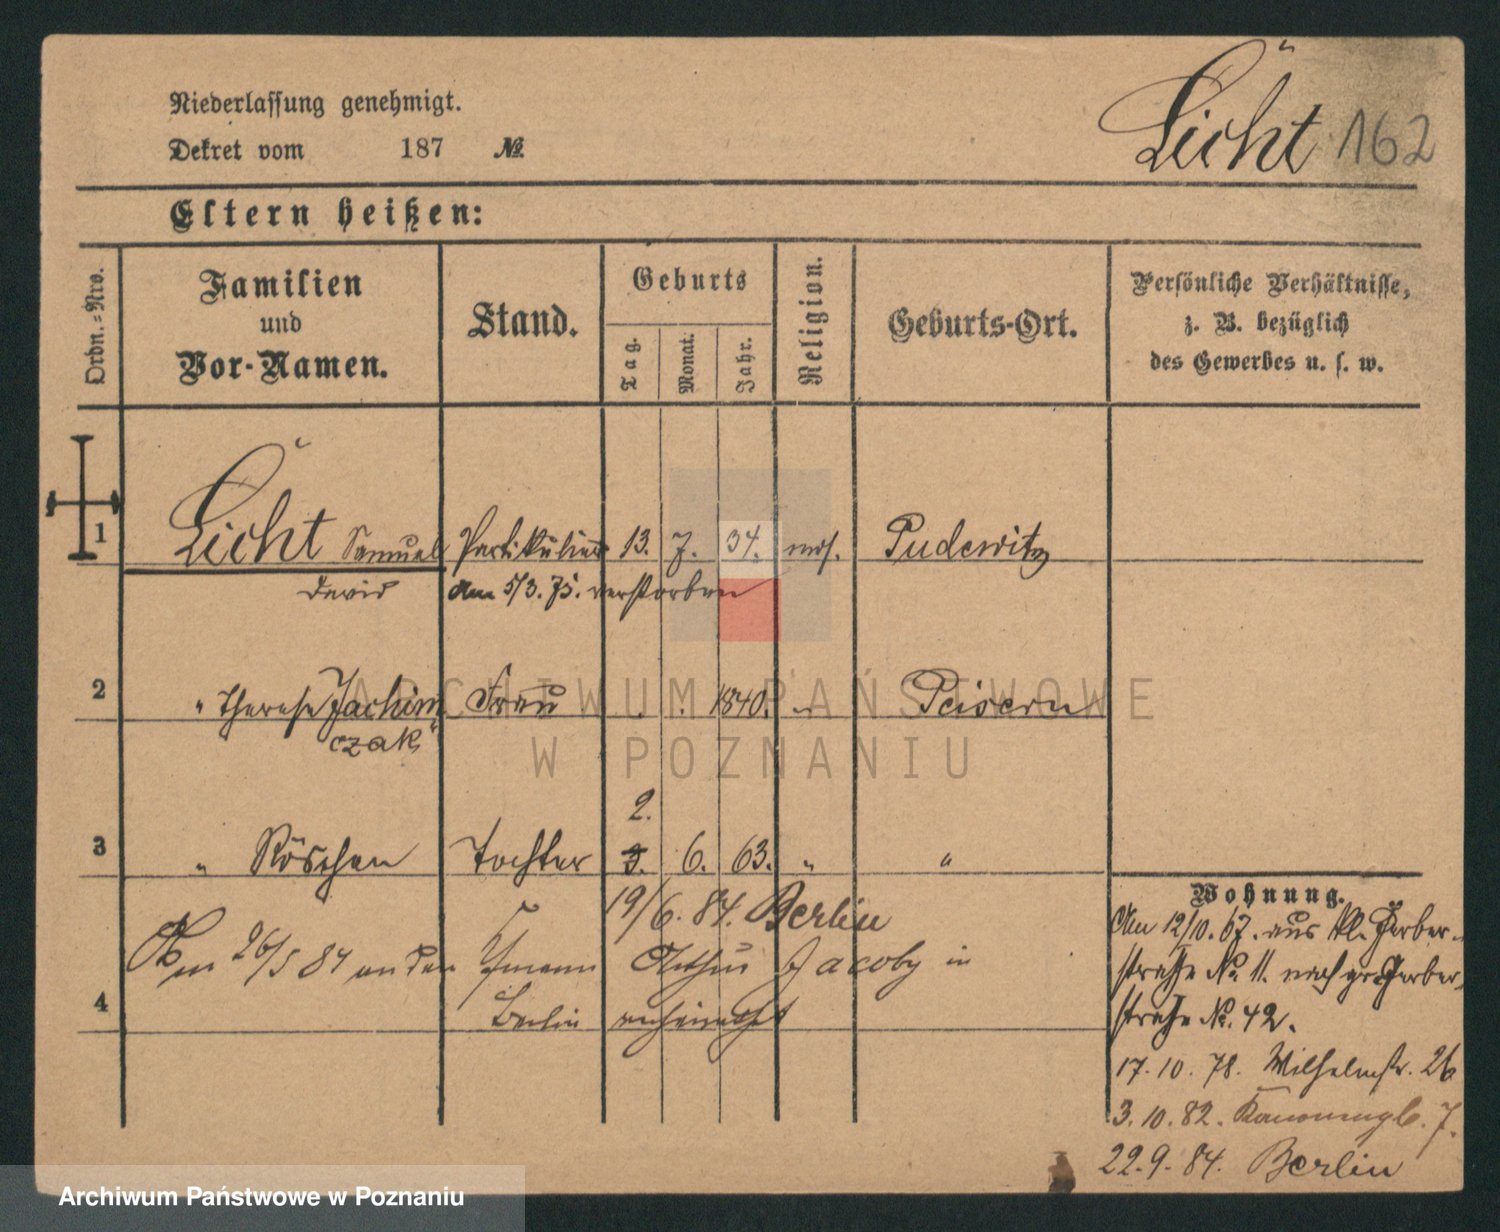 Niederlassung genehmigt.
Dekret vom 187 №
Licht 162
Eltern heißen:
Ordn.-Nro.
Familien
und
Vor-Namen.
Stand.
Geburts
Tag.
Monat.
Jahr.
Religion.
Geburts-Ort.
Persönliche Verhältnisse,
z. B. bezüglich
des Gewerbes u. s. w.
1 Licht Samuel Partikulier 13. 7. 34. mos. Pudewitz
David am 5/3. 75. verstorben
2 " Therese Jachim Frau 1840. " Peisern
czak
2.
3 " Röschen Tochter 3. 6. 63. " "
19/6. 84. Berlin
Am 26/5 84 an den Arthur Jacoby in
4 Berlin verheirathet
Wohnung.
Am 12/10. 67. aus kl. Gerber-
straße No. 11. nach gr. Gerber-
straße No. 42.
17. 10. 78. Wilhelmstr. 26
3. 10. 82. Kanonenpl. 7.
22. 9. 84. Berlin
ARCHIWUM PAŃSTWOWE
W POZNANIU
Archiwum Państwowe w Poznaniu